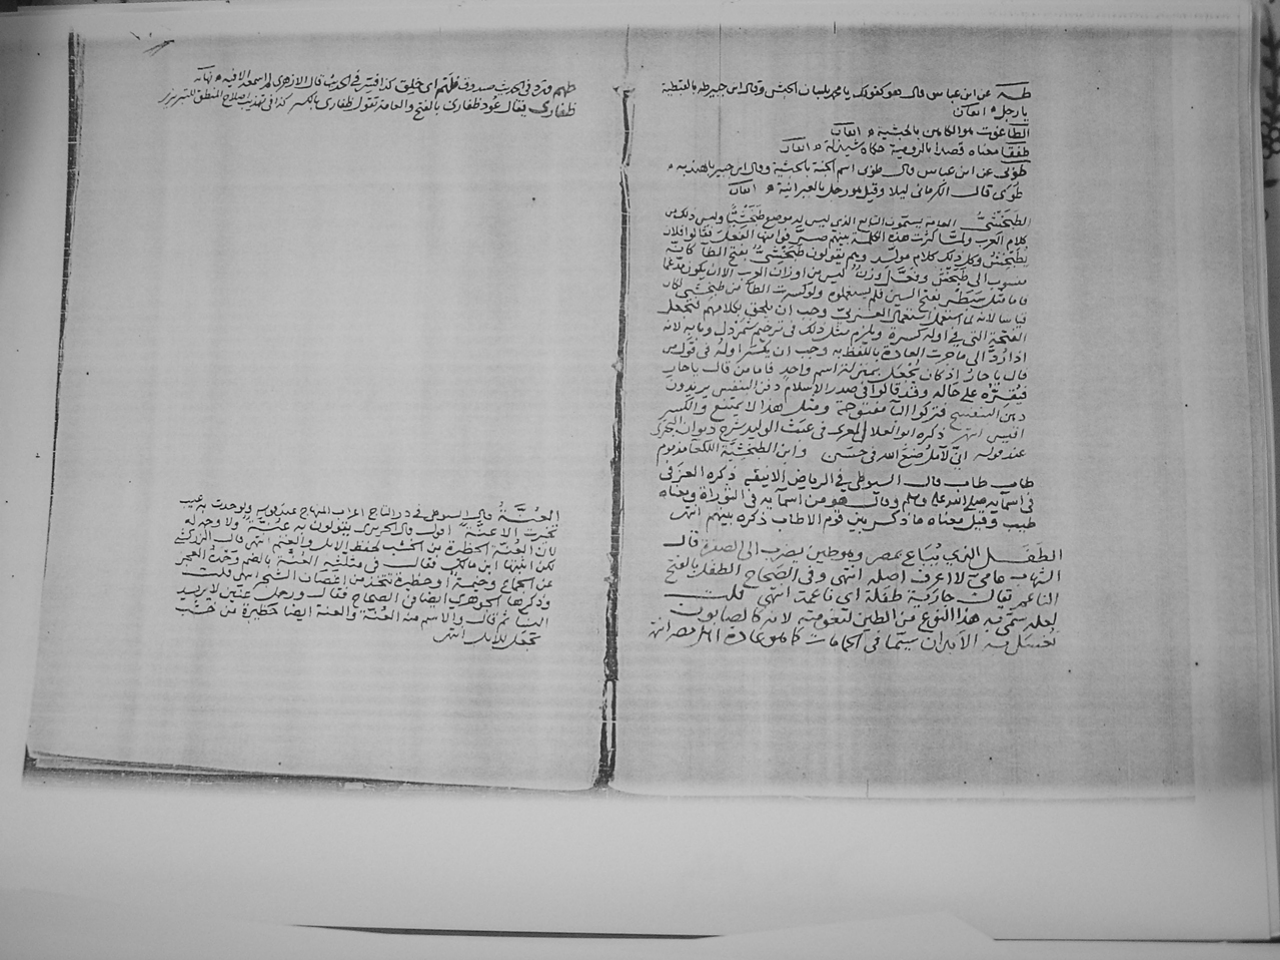 طه عن ابن عباس قال هو كقولك يا محمد بلسان الحبش وقال ابن جبير طه بالقبطية
يا رجل اتقان
الطاغوت هو الكاهن بالحبشية اتقان
طفقا معناه قصدا بالرومية حكاه شيذلة اتقان
طوبى عن ابن عباس قال طوبى اسم الجنة بالحبشية وقال ابن جبير بالهندية
طوى قال الكرماني ليلا وقيل هو رجل بالعبرانية اتقان
الطبخشي العامة يسمون التابع الذي ليس له موضع طبخشيا وليس ذلك من
كلام العرب ولما كثرت هذه الكلمة بينهم صرفوا منها الفعل فقالوا فلان
يطبخش وكل ذلك كلام مولد وهم يقولون طبخشي بفتح الطاء كانه
منسوب الى طبخش وفعلل وزن ليس من اوزان العرب الا ان يكون مدغما
فاما مثل سبطر بفتح السين فلم يستعملوه ولو كسرت الطاء من طبخشي لكان
قياسا لانه لما استعمل استعمال العربي وجب ان يلحق بكلامهم فتجعل
الفتحة التي في اوله كسرة ويلزم مثل ذلك في ترخيم شمردل وبابه لانه
اذا رد الى ما جرت العادة باللفظ به وجب ان يكسر اوله في قول من
قال يا حار اذ كان يجعل بمنزلة اسم واحد فاما من قال يا حار
فيقره على حاله وقد قالوا في صدر الاسلام دهن البنفسج يريدون
دهن البنفسج فتركوا الباء مفتوحة ومثل هذا لا يمتنع والكسر
اقيس انتهى ذكره ابو العلا المعري في عبث الوليد شرح ديوان البحتري
عند قوله اني لآمل صنع الله في حسن وابن الطبخشية اللكعاء مذموم
طاب طاب قال السيوطي في الرياض الانيقة ذكره العزفي
في اسمائه صلى الله عليه وسلم وقال هو من اسمائه في التوراة ومعناه
طيب وقيل معناه ما ذكر بين قوم الا طاب ذكره بينهم انتهى
الطفل الذي يباع بمصر وهو طين يضرب الى الصفرة قال
الشهاب عامي لا اعرف اصله انتهى وفي الصحاح الطفل بالفتح
الناعم يقال جارية طفلة اي ناعمة انتهى قلت
لعله سمي به هذا النوع من الطين لنعومته لانه كالصابون
تغسل به الابدان سيما في الحمامات كما هو عادة اهل مصر انتهى
طهم فرد في الحديث مسدوق فطهم اي خلق كذا فسر في الحديث قال الازهري لم اسمعه الا فيه نهاية
ظفاري يقال عود ظفاري بالفتح والعامة تقول ظفاري بالكسر كذا في تهذيب اصلاح المنطق للتبريزي
العنة قال السيوطي في در التاج اعراب المنهاج عند قوله ولو وجدت به عيب
تخيرت الا عنة اقول قال الحريري يقولون به عنة ولا وجه له
لان العنة الحظيرة من الخشب لحفظ الابل والغنم انتهى قال الزركشي
لكن اثبتها ابن مالك فقال في مثلثه العنة بالضم العجز
عن الجماع وخيمة وحظيرة تتخذ من اغصان الشجر انتهى قلت
وذكرها الجوهري ايضا في الصحاح فقال ورجل عنين لا يريد
النساء ثم قال والاسم منه العنة والعنة ايضا حظيرة من خشب
تجعل للابل انتهى